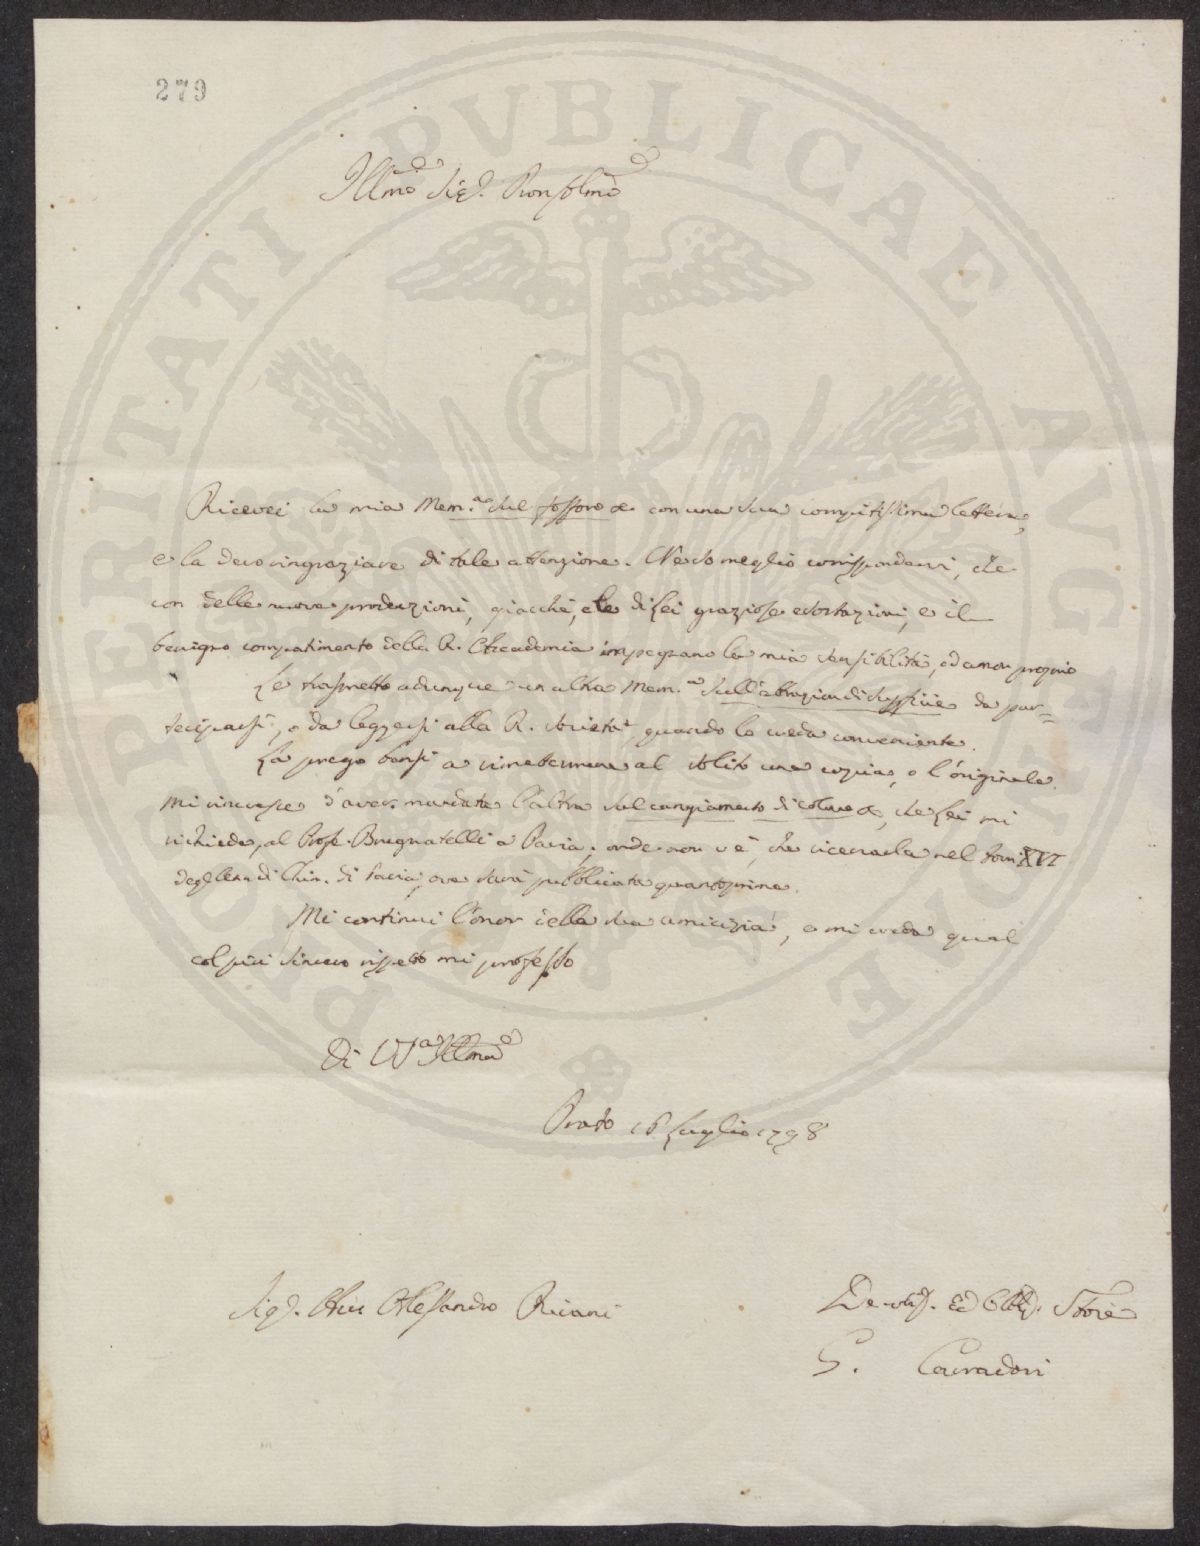 279
Ill.mo Sig.r Pron. Colmo
Ricevei la mia Mem.a sul fosforo &c con una sua compitissima lettera,
e la devo ringraziare di tale attenzione. Nè so meglio corrispondervi, che
con delle nuove produzioni, giacchè, e le di Lei graziose esortazioni, e il
benigno compatimento della R. Accademia impegnano la mia sensibilità, ed amor proprio
Le trasmetto adunque un altra Mem.a sull'attrazion di superficie da par=
teciparsi, o da leggersi alla R. Società, quando lo creda conveniente.
La prego bensì a rimettermene al solito una copia, o l'originale.
Mi rincresce d'aver mandata l'altra sul cangiamento di colore &c, che Lei mi
richiede, al Prof. Brugnatelli a Pavia; onde non v'è, che ricercarla nel Tom. XVI
degli Ann. di Chim. di Pavia, ove sarà pubblicata quantoprima.
Mi continui l'onor della sua amicizia, e mi creda qual
col più sincero rispetto mi professo
Di V.S. Ill.ma
Prato 16 Luglio 1798
Sig.r Alessandro Rivani
Devotiss. ed Obblig. S.tore
G. Carradori
PROSPERITATI PVBLICAE AVGENDAE